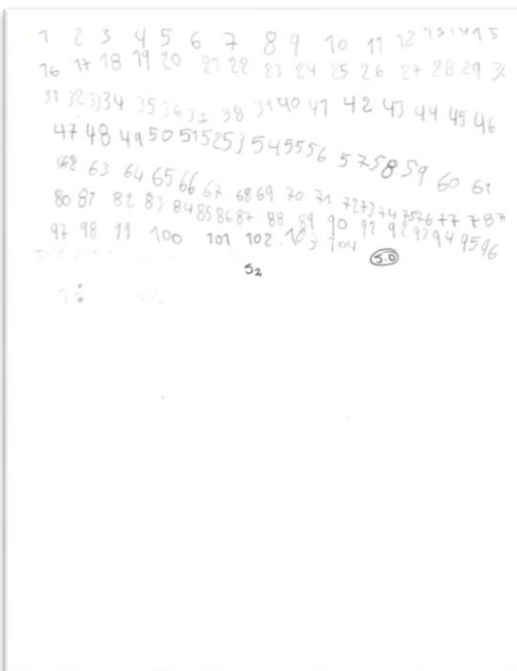 1 2 3 4 5 6 7 8 9 10 11 12 13 14 15
16 17 18 19 20 21 22 23 24 25 26 27 28 29 30
31 32 33 34 35 36 37 38 39 40 41 42 43 44 45 46
47 48 49 50 51 52 53 54 55 56 57 58 59 60 61
62 63 64 65 66 67 68 69 70 71 72 73 74 75 76 77 78 7
80 81 82 83 84 85 86 87 88 89 90 91 92 93 94 95 96
97 98 99 100 101 102 103 104
5.0
52